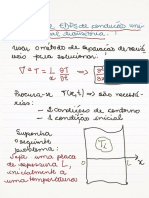 EDPs de condução uni-
al transitória:
Usar o método de separação de variá-
veis para solucionar:
∇²T = 1/α ∂T/∂t ⇒
Procura-se T(x,t) → são necessá-
rias:
- 2 condições de contorno
- 1 condição inicial
Suponha
o seguinte
problema:
Seja uma placa
de espessura L,
inicialmente a
uma temperatura
Ti
x
L